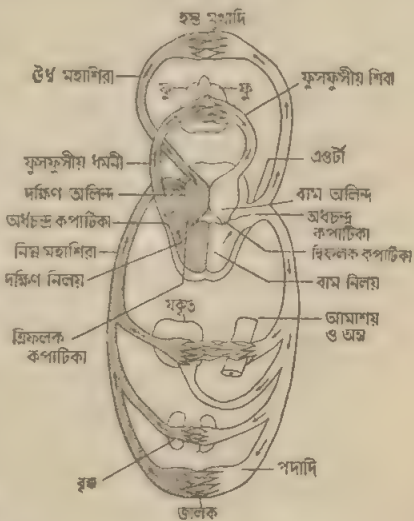 হস্ত মুখাদি
ঊর্ধ্ব মহাশিরা
ফু
ফু
ফুসফুসীয় শিরা
ফুসফুসীয় ধমনী
এওর্টা
দক্ষিণ অলিন্দ
বাম অলিন্দ
অর্ধচন্দ্র কপাটিকা
অর্ধচন্দ্র
কপাটিকা
নিম্ন মহাশিরা
দ্বিফলক কপাটিকা
দক্ষিণ নিলয়
বাম নিলয়
যকৃত
আমাশয়
ও অন্ত্র
ত্রিফলক
কপাটিকা
বৃক্ক
পদাদি
জালক